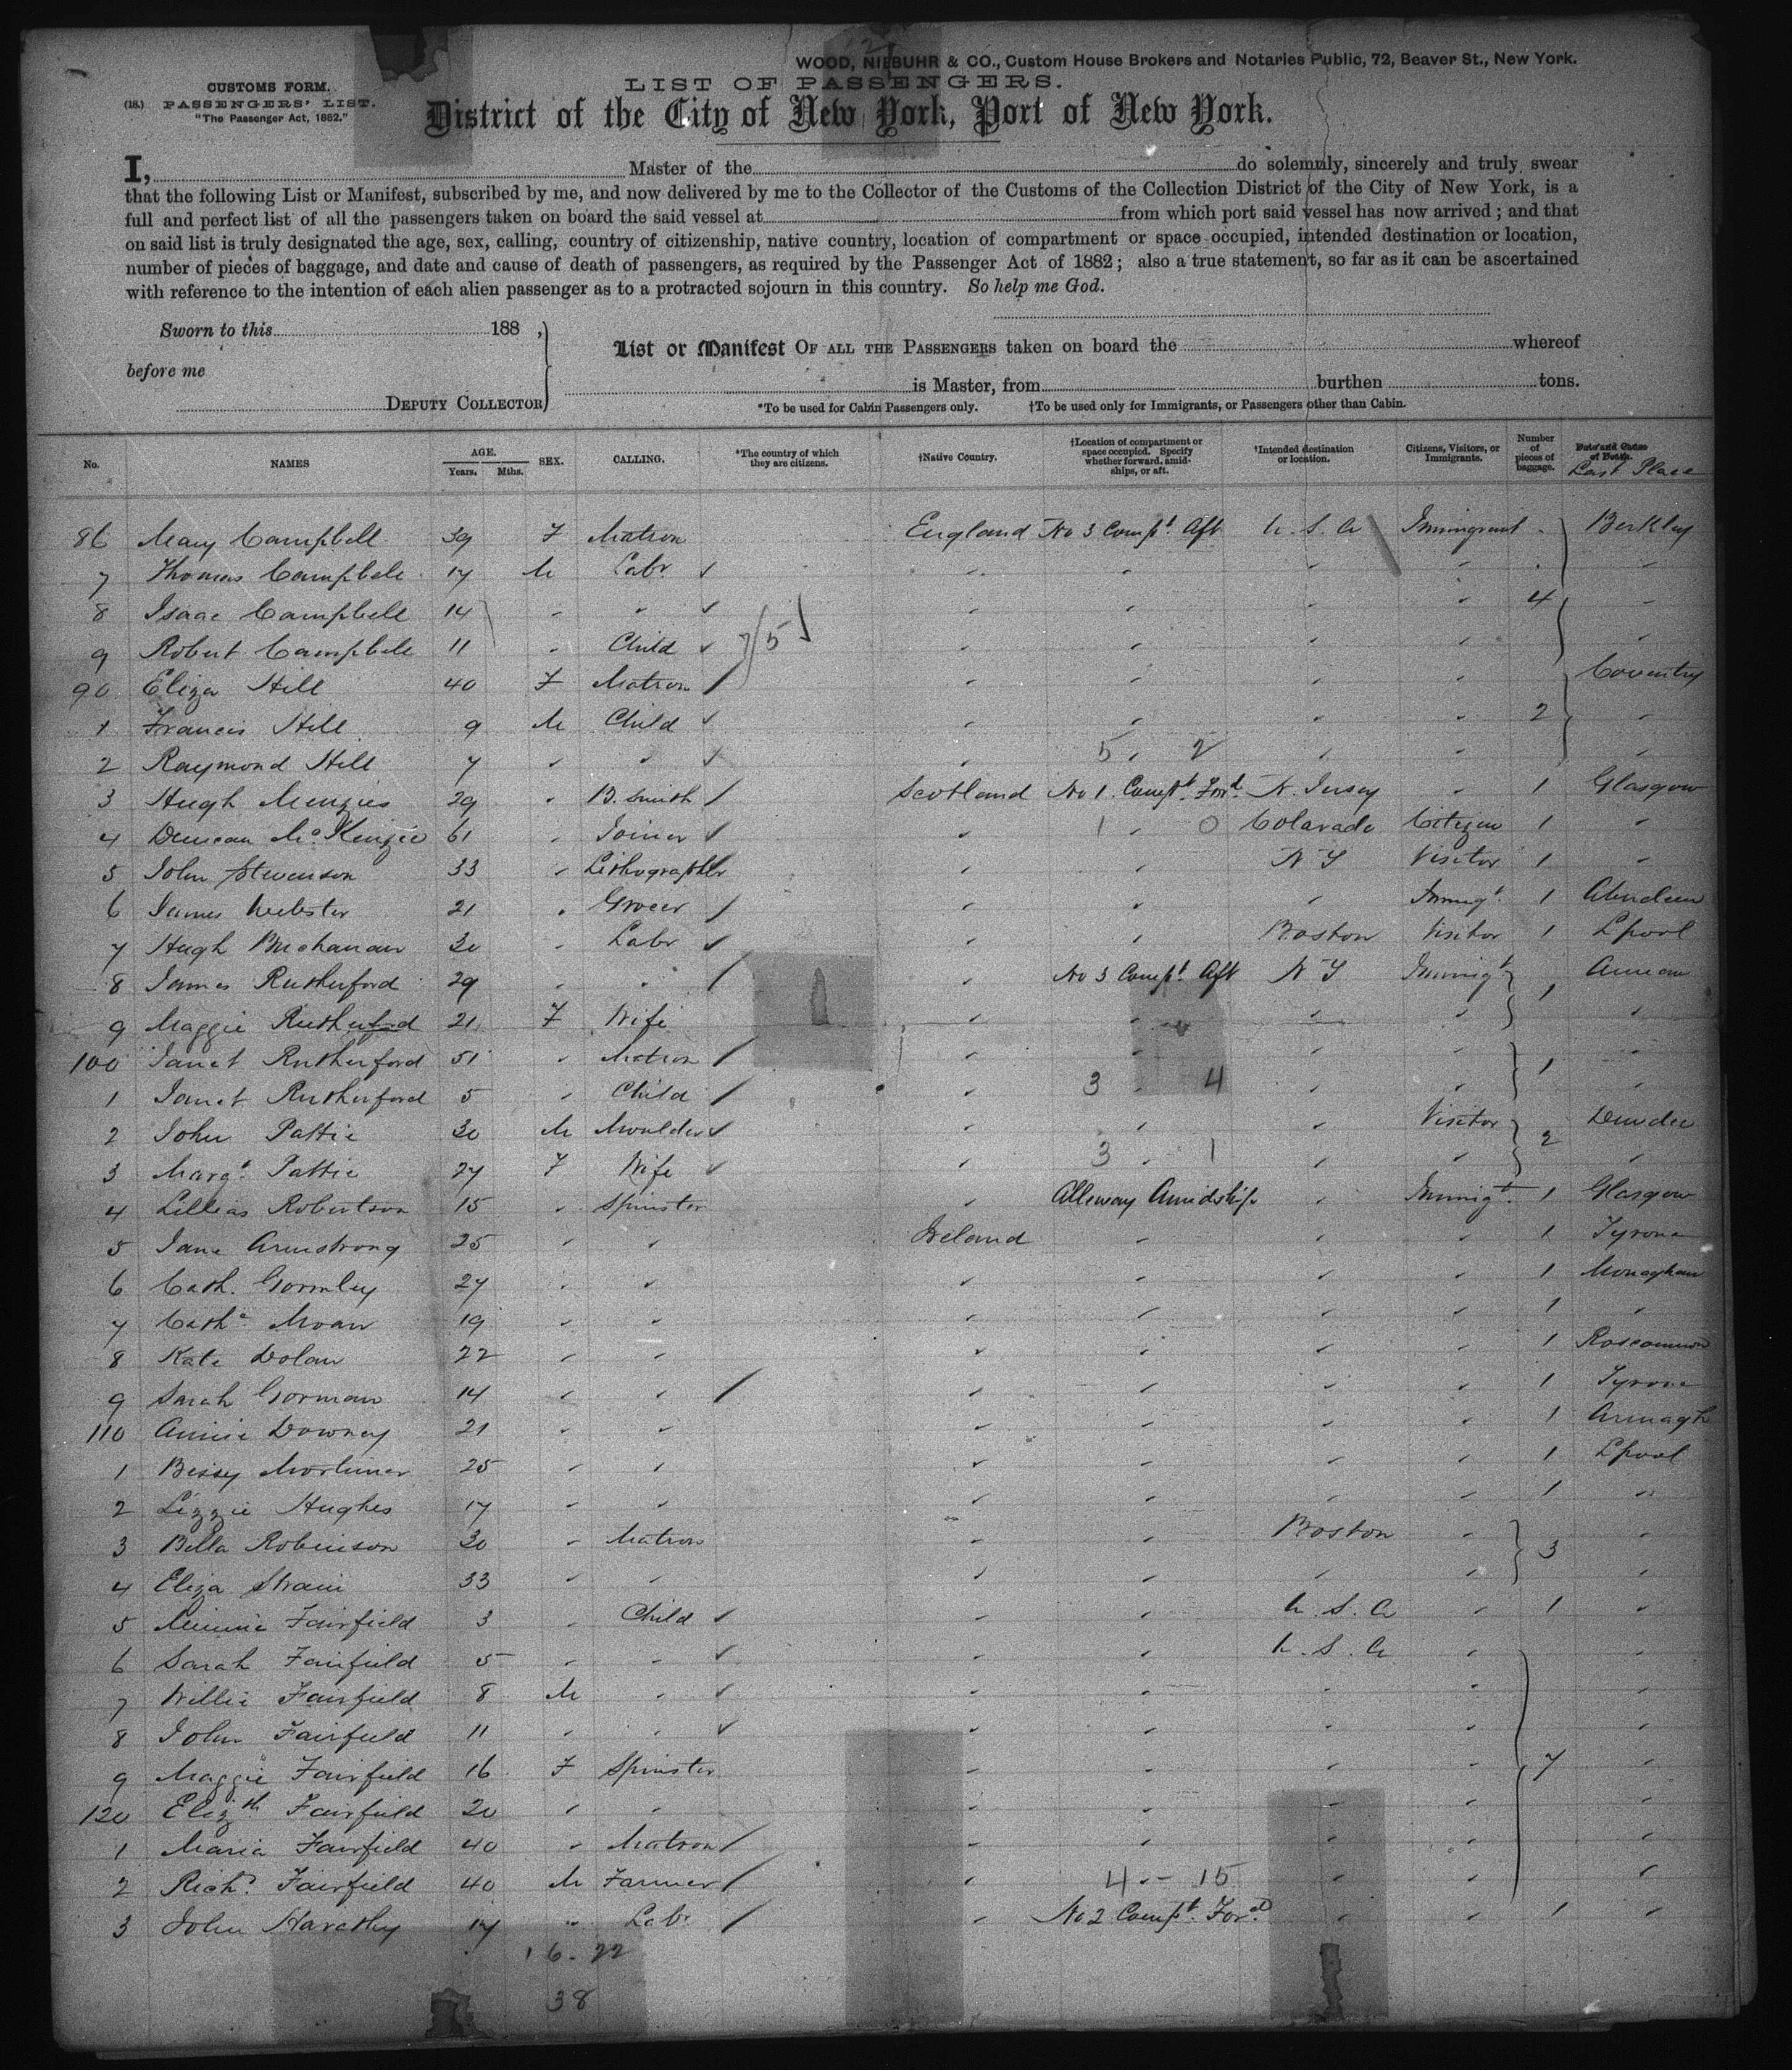 WOOD, NIEBUHR & CO., Custom House Brokers and Notaries Public, 72, Beaver St., New York.
CUSTOMS FORM.
(18.) PASSENGERS' LIST.
"The Passenger Act, 1882."
LIST OF PASSENGERS.
District of the City of New York, Port of New York.
I, Master of the do solemnly, sincerely and truly swear
that the following List or Manifest, subscribed by me, and now delivered by me to the Collector of the Customs of the Collection District of the City of New York, is a
full and perfect list of all the passengers taken on board the said vessel at from which port said vessel has now arrived; and that
on said list is truly designated the age, sex, calling, country of citizenship, native country, location of compartment or space occupied, intended destination or location,
number of pieces of baggage, and date and cause of death of passengers, as required by the Passenger Act of 1882; also a true statement, so far as it can be ascertained
with reference to the intention of each alien passenger as to a protracted sojourn in this country. So help me God.
Sworn to this 188 ,
before me
DEPUTY COLLECTOR
List or Manifest OF ALL THE PASSENGERS taken on board the whereof
is Master, from burthen tons.
*To be used for Cabin Passengers only. †To be used only for Immigrants, or Passengers other than Cabin.
No. NAMES AGE. Years. Mths. SEX. CALLING. *The country of which they are citizens. †Native Country. †Location of compartment or space occupied. Specify whether forward, amidships, or aft. †Intended destination or location. Citizens, Visitors, or Immigrants. Number of pieces of baggage. Date and Cause of Death. Last Place
86 Mary Campbell 39 F Matron England No 3 Compt. Aft U.S.A Immigrant Berkley
7 Thomas Campbell 17 M Labr. "
8 Isaac Campbell 14 " " 4 "
9 Robert Campbell 11 " Child 7/5 "
90 Eliza Hill 40 F Matron " Coventry
1 Francis Hill 9 M Child " 2 "
2 Raymond Hill 7 " " " 5 . 2 "
3 Hugh Menzies 29 " B. Smith Scotland No 1. Compt. Ford. N. Jersey " 1 Glasgow
4 Duncan McKenzie 61 " Joiner " 1 . 0 Colarado Citizen 1 "
5 John Stevenson 33 " Lithographer " " N Y Visitor 1 "
6 James Webster 21 " Grocer " " " Immigt. 1 Aberdeen
7 Hugh Buchanan 30 " Labr " " Boston Visitor 1 Lpool
8 James Rutherford 29 " " " No 3 Compt. Aft N Y Immigt 1 Annan
9 Maggie Rutherford 21 F Wife " " " " "
100 Janet Rutherford 51 " Matron " " " " 1 "
1 Janet Rutherford 5 " Child " 3 . 4 " " "
2 John Pattie 30 M Moulder " " " Visitor 2 Dundee
3 Margt. Pattie 27 F Wife " 3 . 1 " " "
4 Lillias Robertson 15 " Spinster " Alleway Amidship " Immigt. 1 Glasgow
5 Jane Armstrong 25 " " Ireland " " " 1 Tyrone
6 Cath. Gormley 27 " " " " " " 1 Monaghan
7 Cathe. Moan 19 " " " " " " 1 "
8 Kate Dolan 22 " " " " " " 1 Roscommon
9 Sarah Gorman 14 " " " " " " 1 Tyrone
110 Annie Downey 21 " " " " " " 1 Armagh
1 Bessy Mortimer 25 " " " " " " 1 Lpool
2 Lizzie Hughes 17 " " " " " " 1 "
3 Bella Robinson 30 " Matron " " Boston " 3 "
4 Eliza Strain 33 " " " " " " "
5 Minnie Fairfield 3 " Child " " U.S.A " 1 "
6 Sarah Fairfield 5 " " " " U.S.A " "
7 Willie Fairfield 8 M " " " " " "
8 John Fairfield 11 " " " " " " "
9 Maggie Fairfield 16 F Spinster " " " " 7 "
120 Elizth Fairfield 20 " " " " " " "
1 Maria Fairfield 40 " Matron " " " " "
2 Richd. Fairfield 40 M Farmer " 4 - 15 " " "
3 John 17 " Labr " No 2 Compt. Ford " " 1 "
16 . 22
38